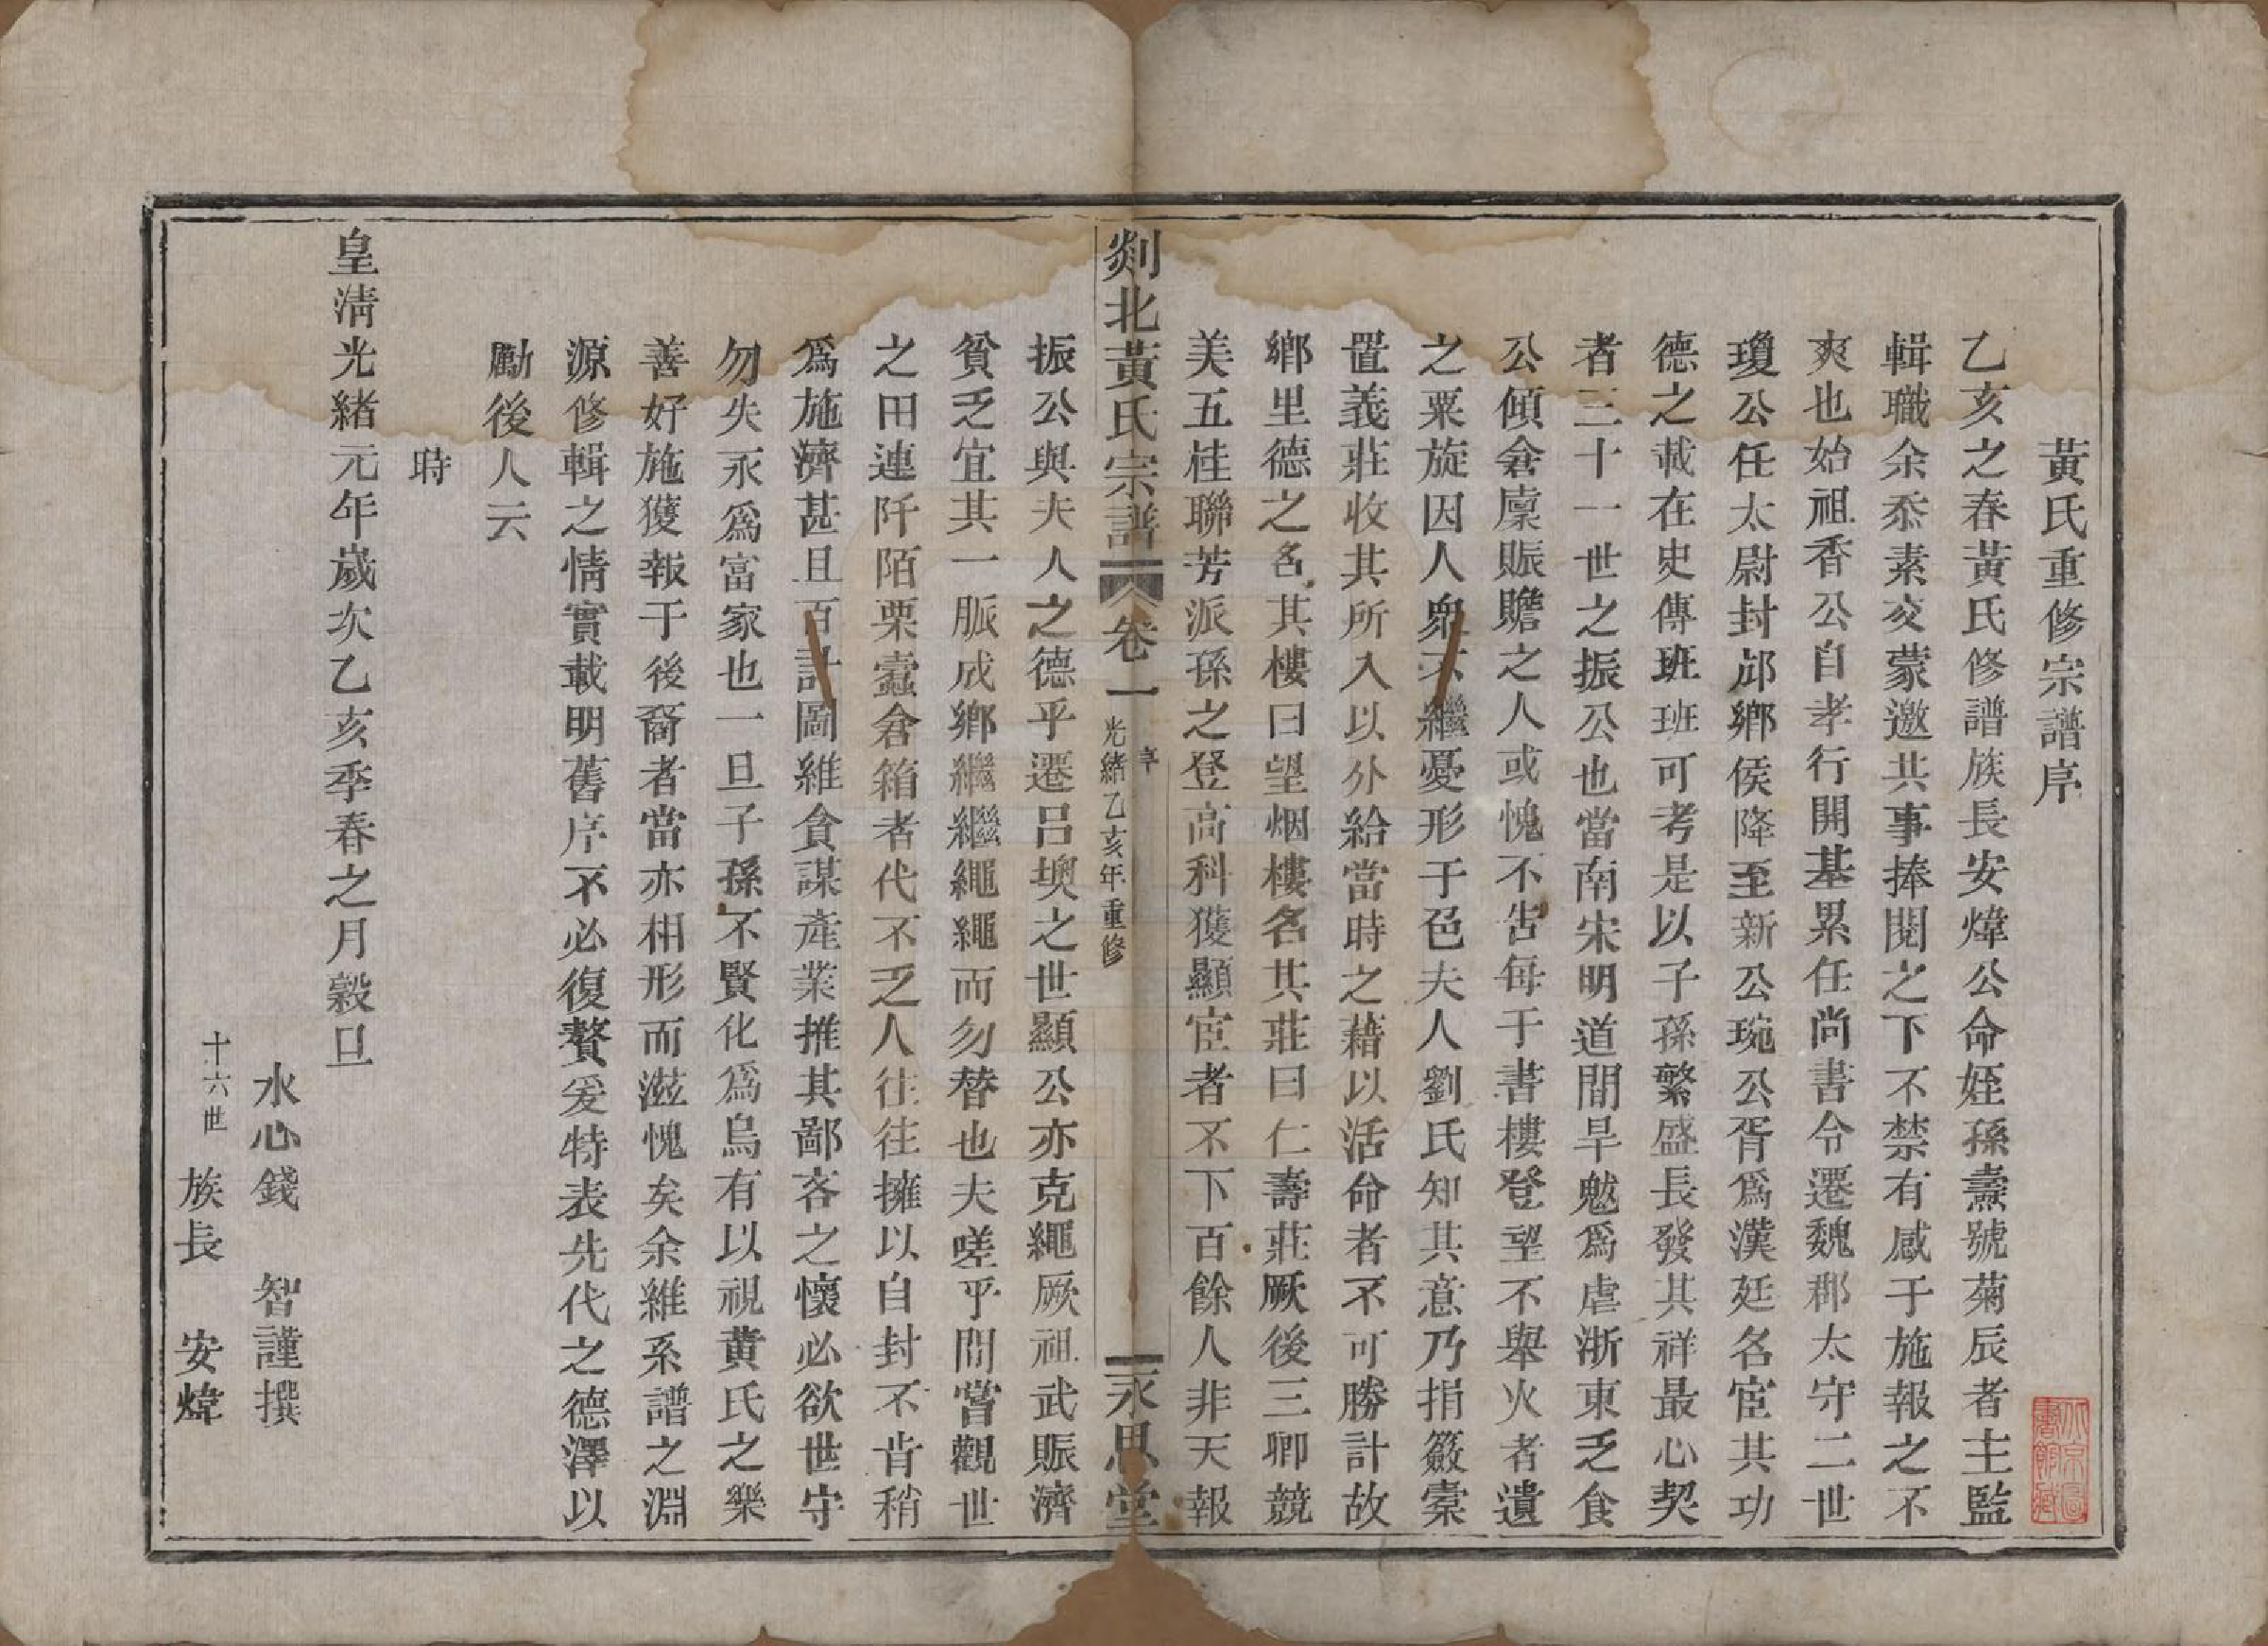 黃氏重修宗譜序
乙亥之春黃氏修譜族長安煒公命姪孫燾號菊辰者主監
輯職余忝素交蒙邀共事捧閱之下不禁有感于施報之不
爽也始祖香公自孝行開基累任尚書令遷魏郡太守二世
瓊公任太尉封邟鄉侯降至新公琬公胥爲漢廷名宦其功
德之載在史傳班班可考是以子孫繁盛長發其祥最心契
者三十一世之振公也當南宋明道間旱魃爲虐浙東乏食
公傾倉廩賑贍之人或愧不吿每于書樓登望不舉火者遺
之粟旋因人衆不繼憂形于色夫人劉氏知其意乃捐簽橐
置義莊收其所入以外給當時之藉以活命者不可勝計故
鄉里德之名其樓曰望烟樓名其莊曰仁壽莊厥後三卿競
美五桂聯芳派孫之登高科獲顯宦者不下百餘人非天報
剡北黃氏宗譜 卷一 序 光緒乙亥年重修 永思堂
振公與夫人之德乎遷呂墺之世顯公亦克繩厥祖武賑濟
貧乏宜其一脈成鄉繼繼繼繩繩而勿替也夫嗟乎間嘗觀世
之田連阡陌栗蠹倉箱者代不乏人往往擁以自封不肯稍
爲施濟甚且百計圖維貪謀產業推其鄙吝之懷必欲世守
勿失永爲富家也一旦子孫不賢化爲烏有以視黄氏之樂
善好施獲報于後裔者當亦相形而滋愧矣余維系譜之淵
源修輯之情實載明舊序不必復贅爰特表先代之德澤以
勵後人云
時
皇淸光緒元年歲次乙亥季春之月穀旦
水心錢 智謹撰
十六世 族長 安煒